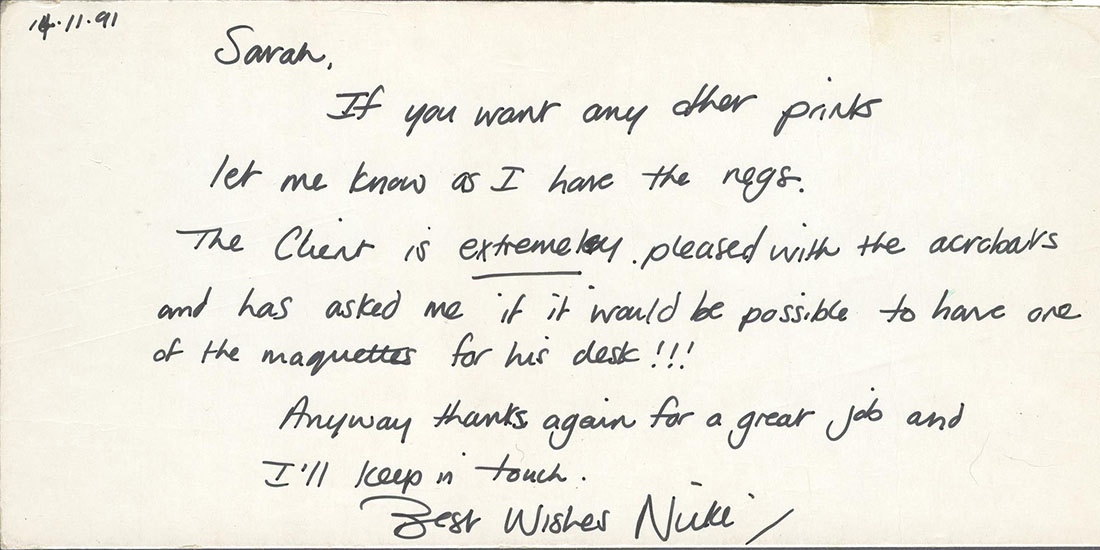 14.11.91
Sarah,
If you want any other prints
let me know as I have the negs.
The Client is extremely pleased with the acrobats
and has asked me if it would be possible to have one
of the maquettes for his desk!!!
Anyway thanks again for a great job and
I'll keep in touch.
Best Wishes Nicki